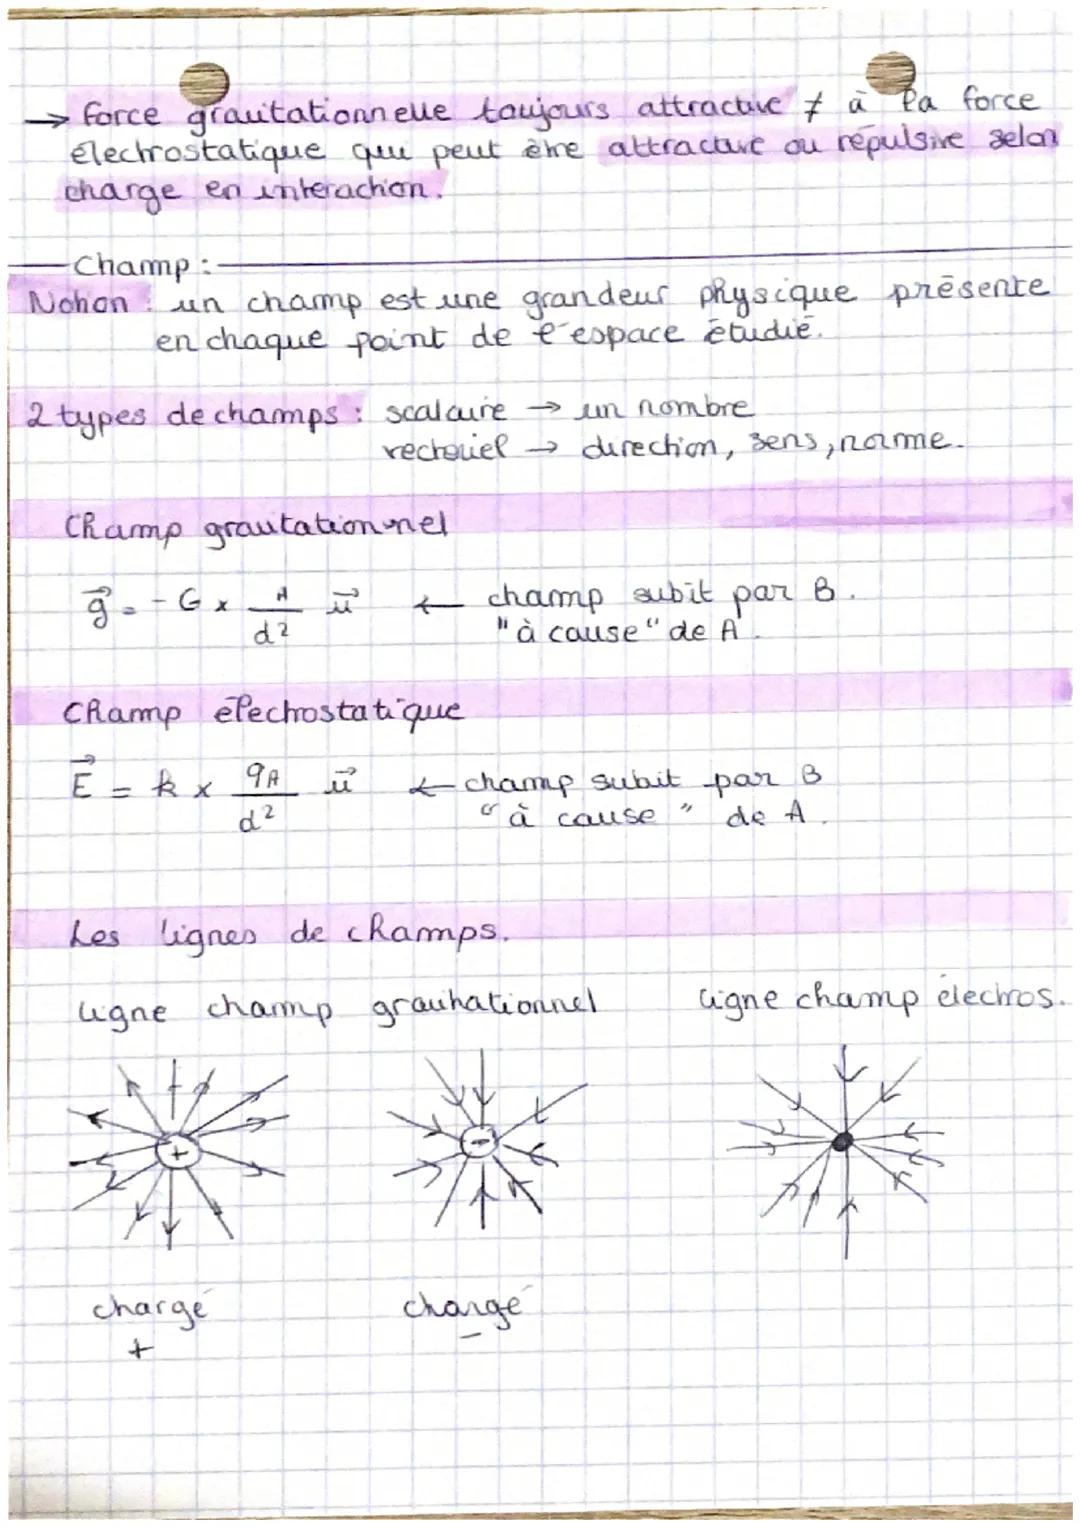 → Force gravitationnelle toujours attractive ≠ à la force
électrostatique qui peut être attractive ou répulsive selon
charge en interaction.
Champ :
Notion : un champ est une grandeur physique présente
en chaque point de l'espace étudié.
2 types de champs : scalaire → un nombre
vectoriel → direction, sens, norme.
Champ gravitationnel
g⃗ = - G x A / d² u⃗ ← champ subit par B.
"à cause" de A.
Champ électrostatique
E⃗ = k x qA / d² u⃗ ← champ subit par B
"à cause" de A.
Les lignes de champs.
ligne champ gravitationnel ligne champ électros.
+ -
chargé chargé
+ -